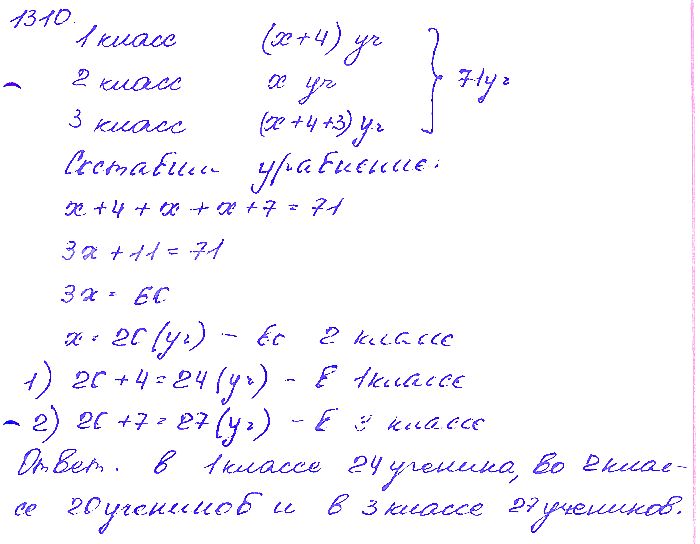 1310.
1 класс (x+4) уч
2 класс x уч } 71 уч
3 класс (x+4+3) уч
Составим уравнение:
x+4+x+x+7=71
3x+11=71
3x=60
x=20(уч) – во 2 классе
1) 20+4=24(уч) – в 1 классе
2) 20+7=27(уч) – в 3 классе
Ответ. в 1 классе 24 ученика, во 2 клас-
се 20 учеников и в 3 классе 27 учеников.